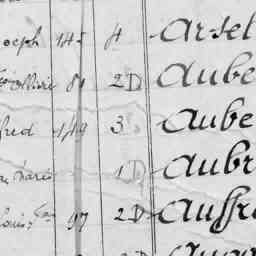 oseph 145 4 Arsel
Marie 81 2D Aube
fred 149 3 Aube
1D Aubr
Louis 97 2D Auffr